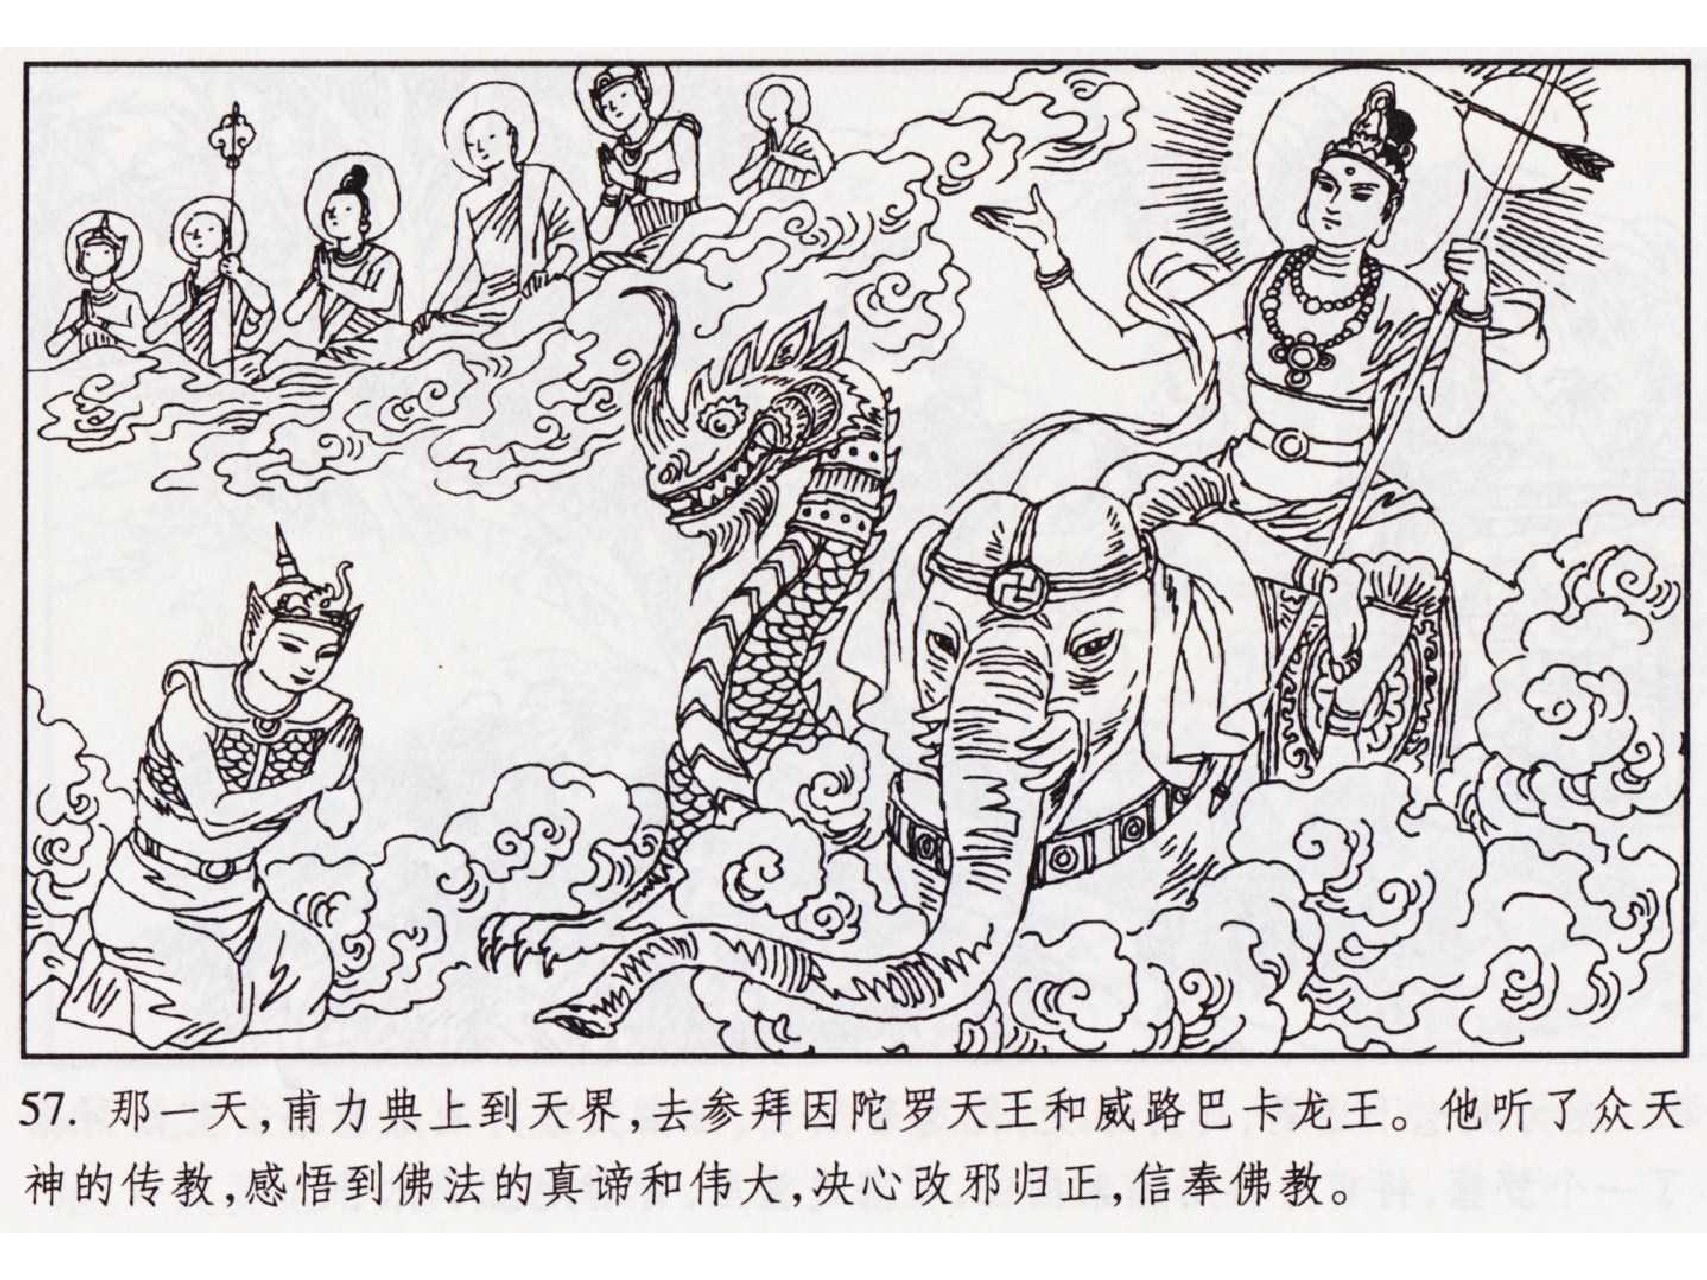 57. 那一天,甫力典上到天界,去参拜因陀罗天王和威路巴卡龙王。他听了众天
神的传教,感悟到佛法的真谛和伟大,决心改邪归正,信奉佛教。